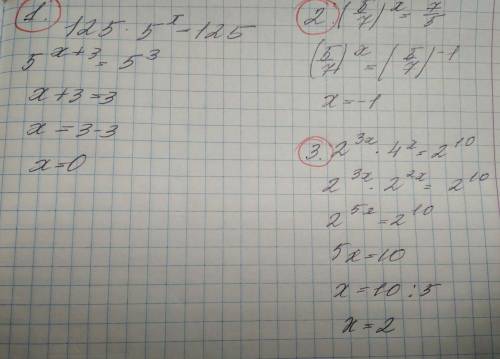 1. 125 · 5^x - 125
5^(x+3) = 5^3
x + 3 = 3
x = 3 - 3
x = 0
2. (5/7)^x = 7/5
(5/7)^x = (5/7)^-1
x = -1
3. 2^(3x) · 4^x = 2^10
2^(3x) · 2^(2x) = 2^10
2^(5x) = 2^10
5x = 10
x = 10 : 5
x = 2